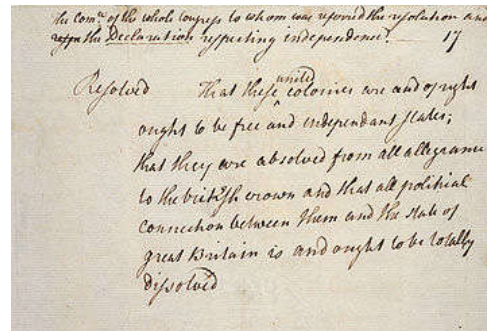 The Comee of the whole Congress to whom was referred the resolution and
the Declaration respecting independence. 17
Resolved That these united colonies are and of right
ought to be free and independant states;
that they are absolved from all allegiance
to the british crown and that all political
connection between them and the state of
great Britain is and ought to be totally
dissolved